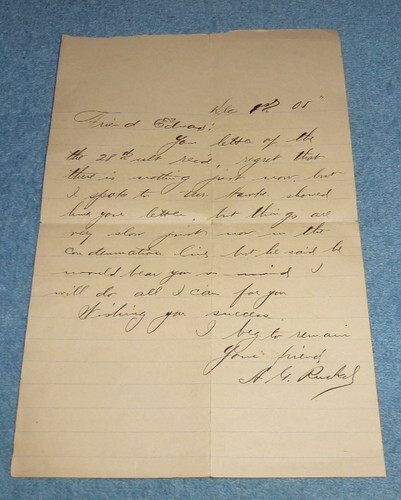 Dec 1st 05
Friend Edward:
Your letter of the
the 28th ult recd, regret that
there is nothing just now, but
I spoke to Mr. showed
him your letter, but things are
very slow just now in the
condemnation line but he said he
would bear you in mind I
will do all I can for you
Wishing you success.
I beg to remain
Your friend,
A. G. Ruckel